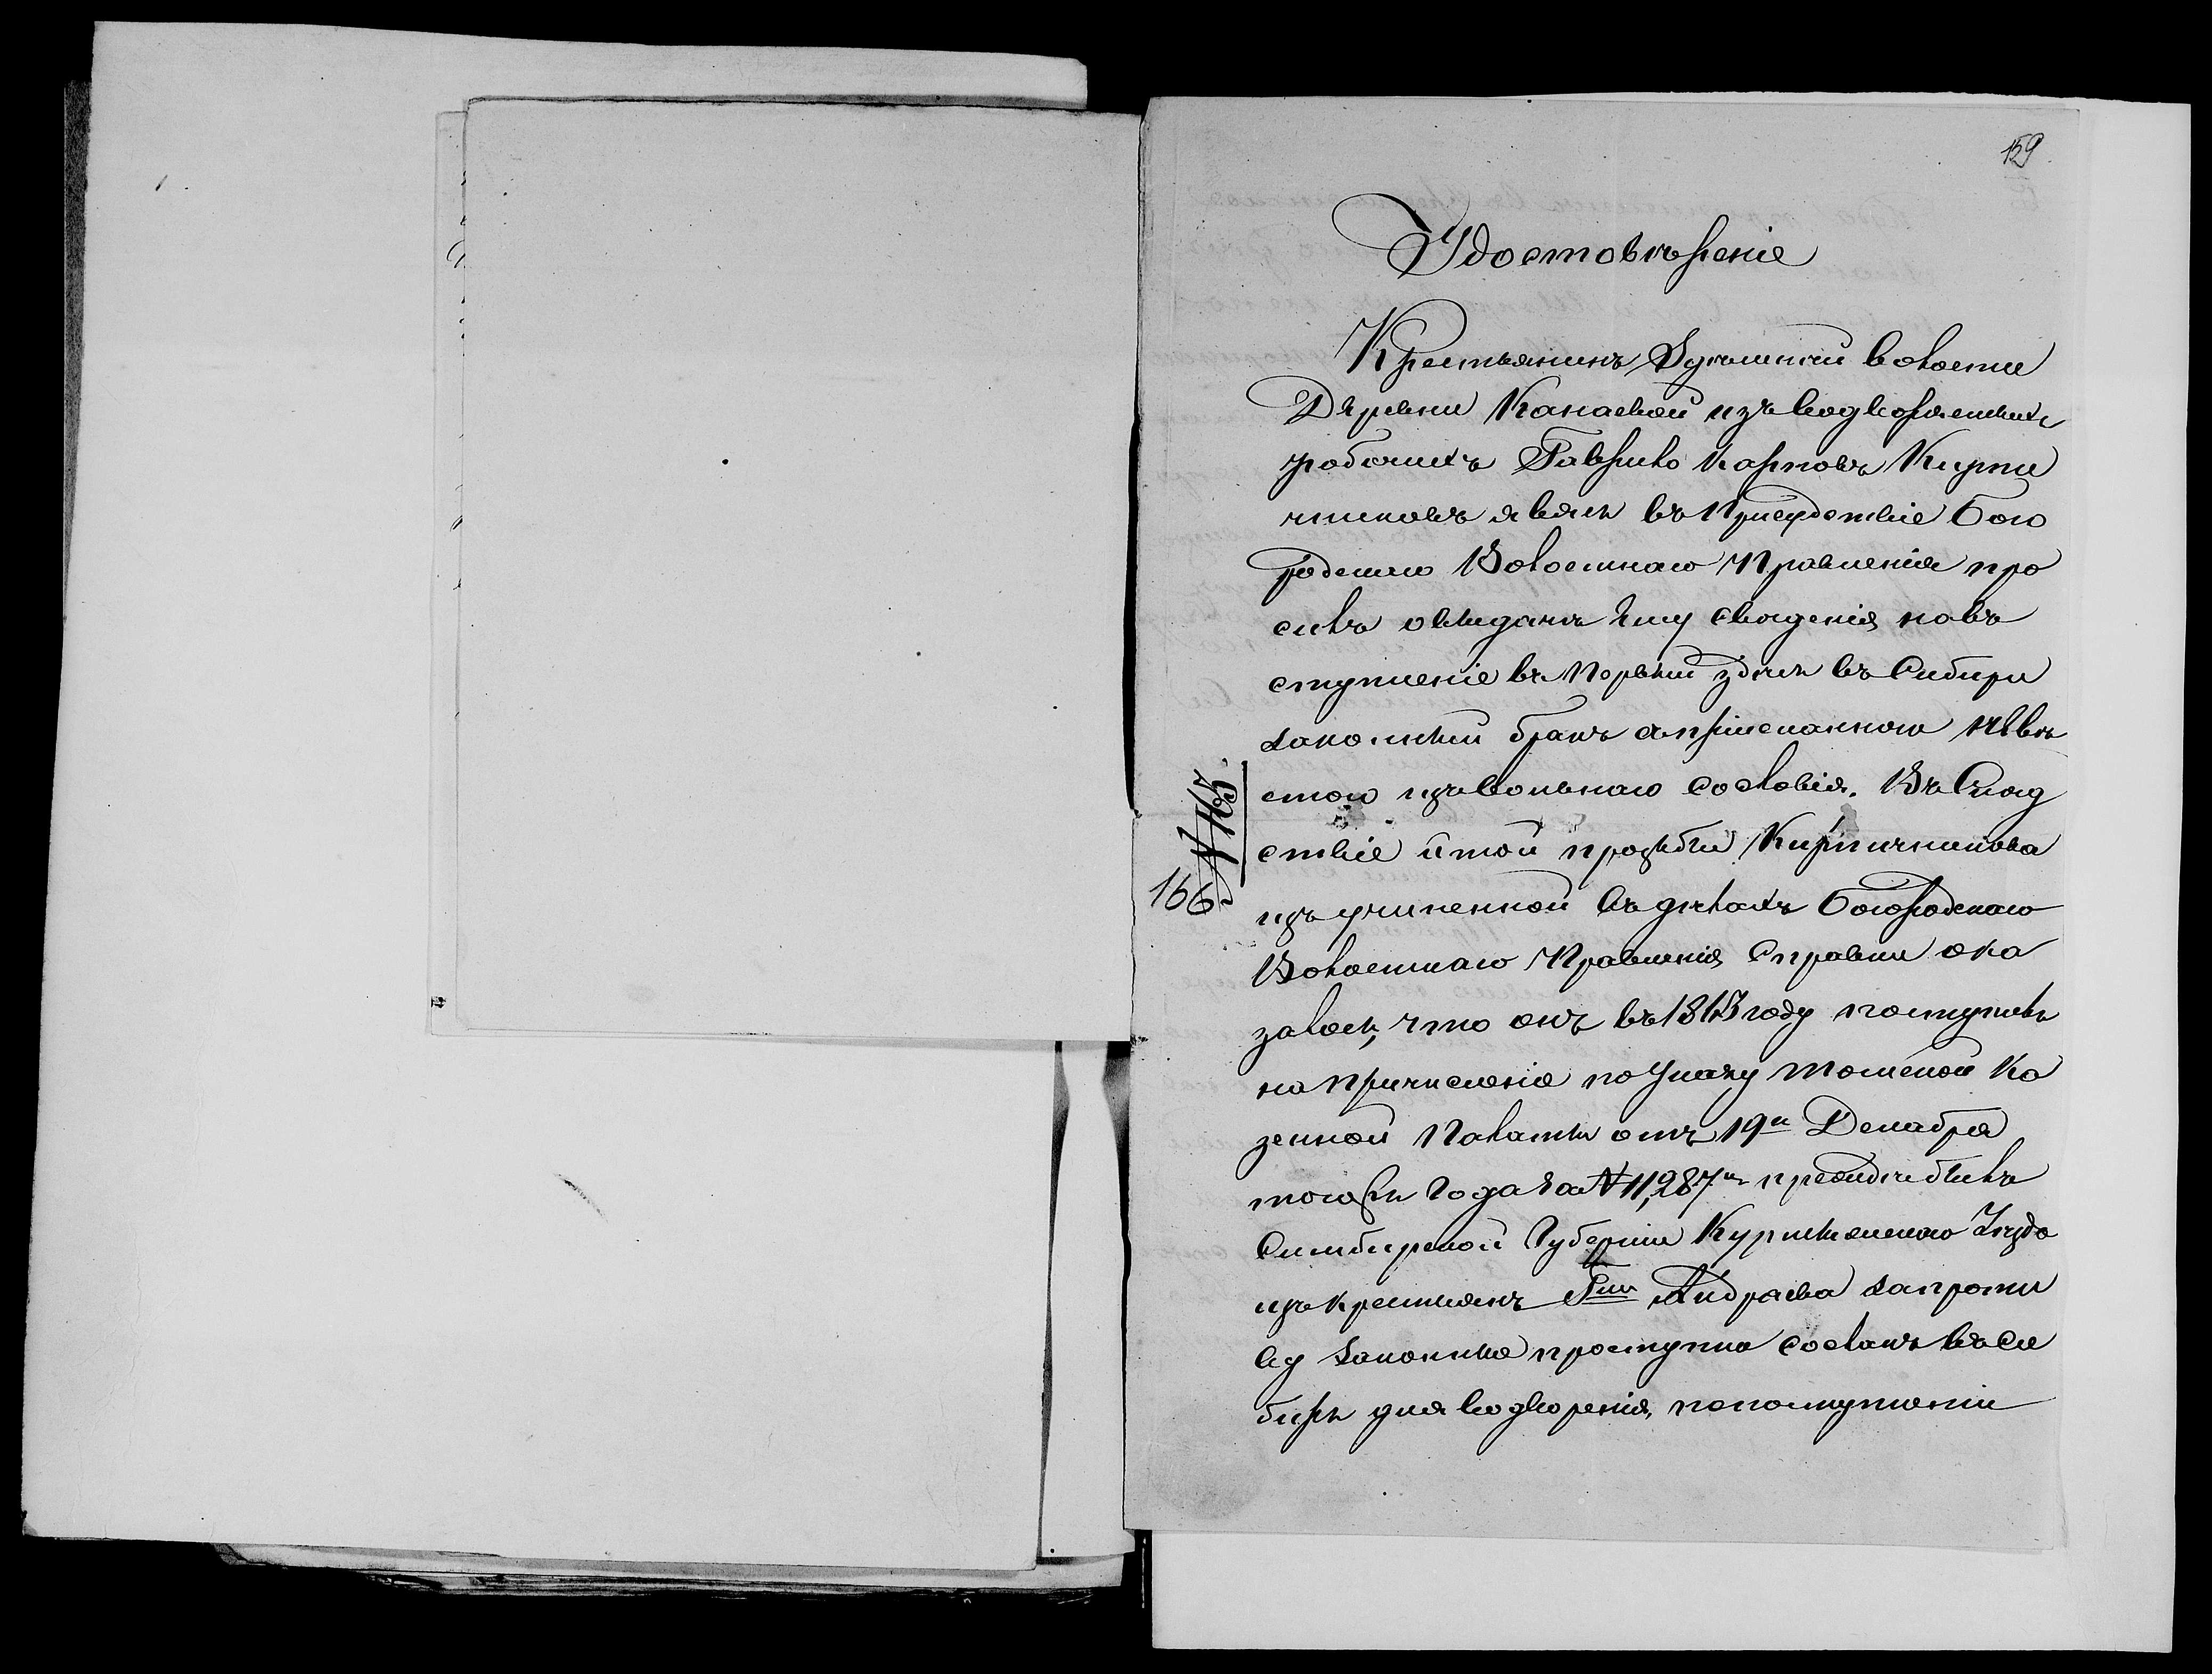 159
Удостовѣреніе
Крестьянинъ волости
Деревни Канаевой изъ водворяемыхъ
рабочихъ Гаврило Карповъ Кирпи
чниковъ явясь въ Присудствіе Бого
родскаго Волостнаго Правленія про
силъ овыдачѣ Ему сведенія новъ
ступленіе въ Первый здѣсь въ Сибири
законный бракъ съ
стою изъ вольнаго сословія. Въ Слѣд
ствіе этой прозьбы Кирпичникова
изъ учиненной въ дѣлахъ Богородскаго
Волостнаго Правленія Справки ока
залось, что онъ въ году поступилъ
на причисленіе по Указу Томской Ка
зенной Палаты отъ 19го Декабря
тогожъ Года за № 11,287м преждѣ былъ
Симбирской Губерніи Курмышскаго Уѣзда
изъ крестьянъ Гна Андраева запроти
ву законные проступки сосланъ въ Си
бирь для водворенія, попоступленіи
№ 165.
166